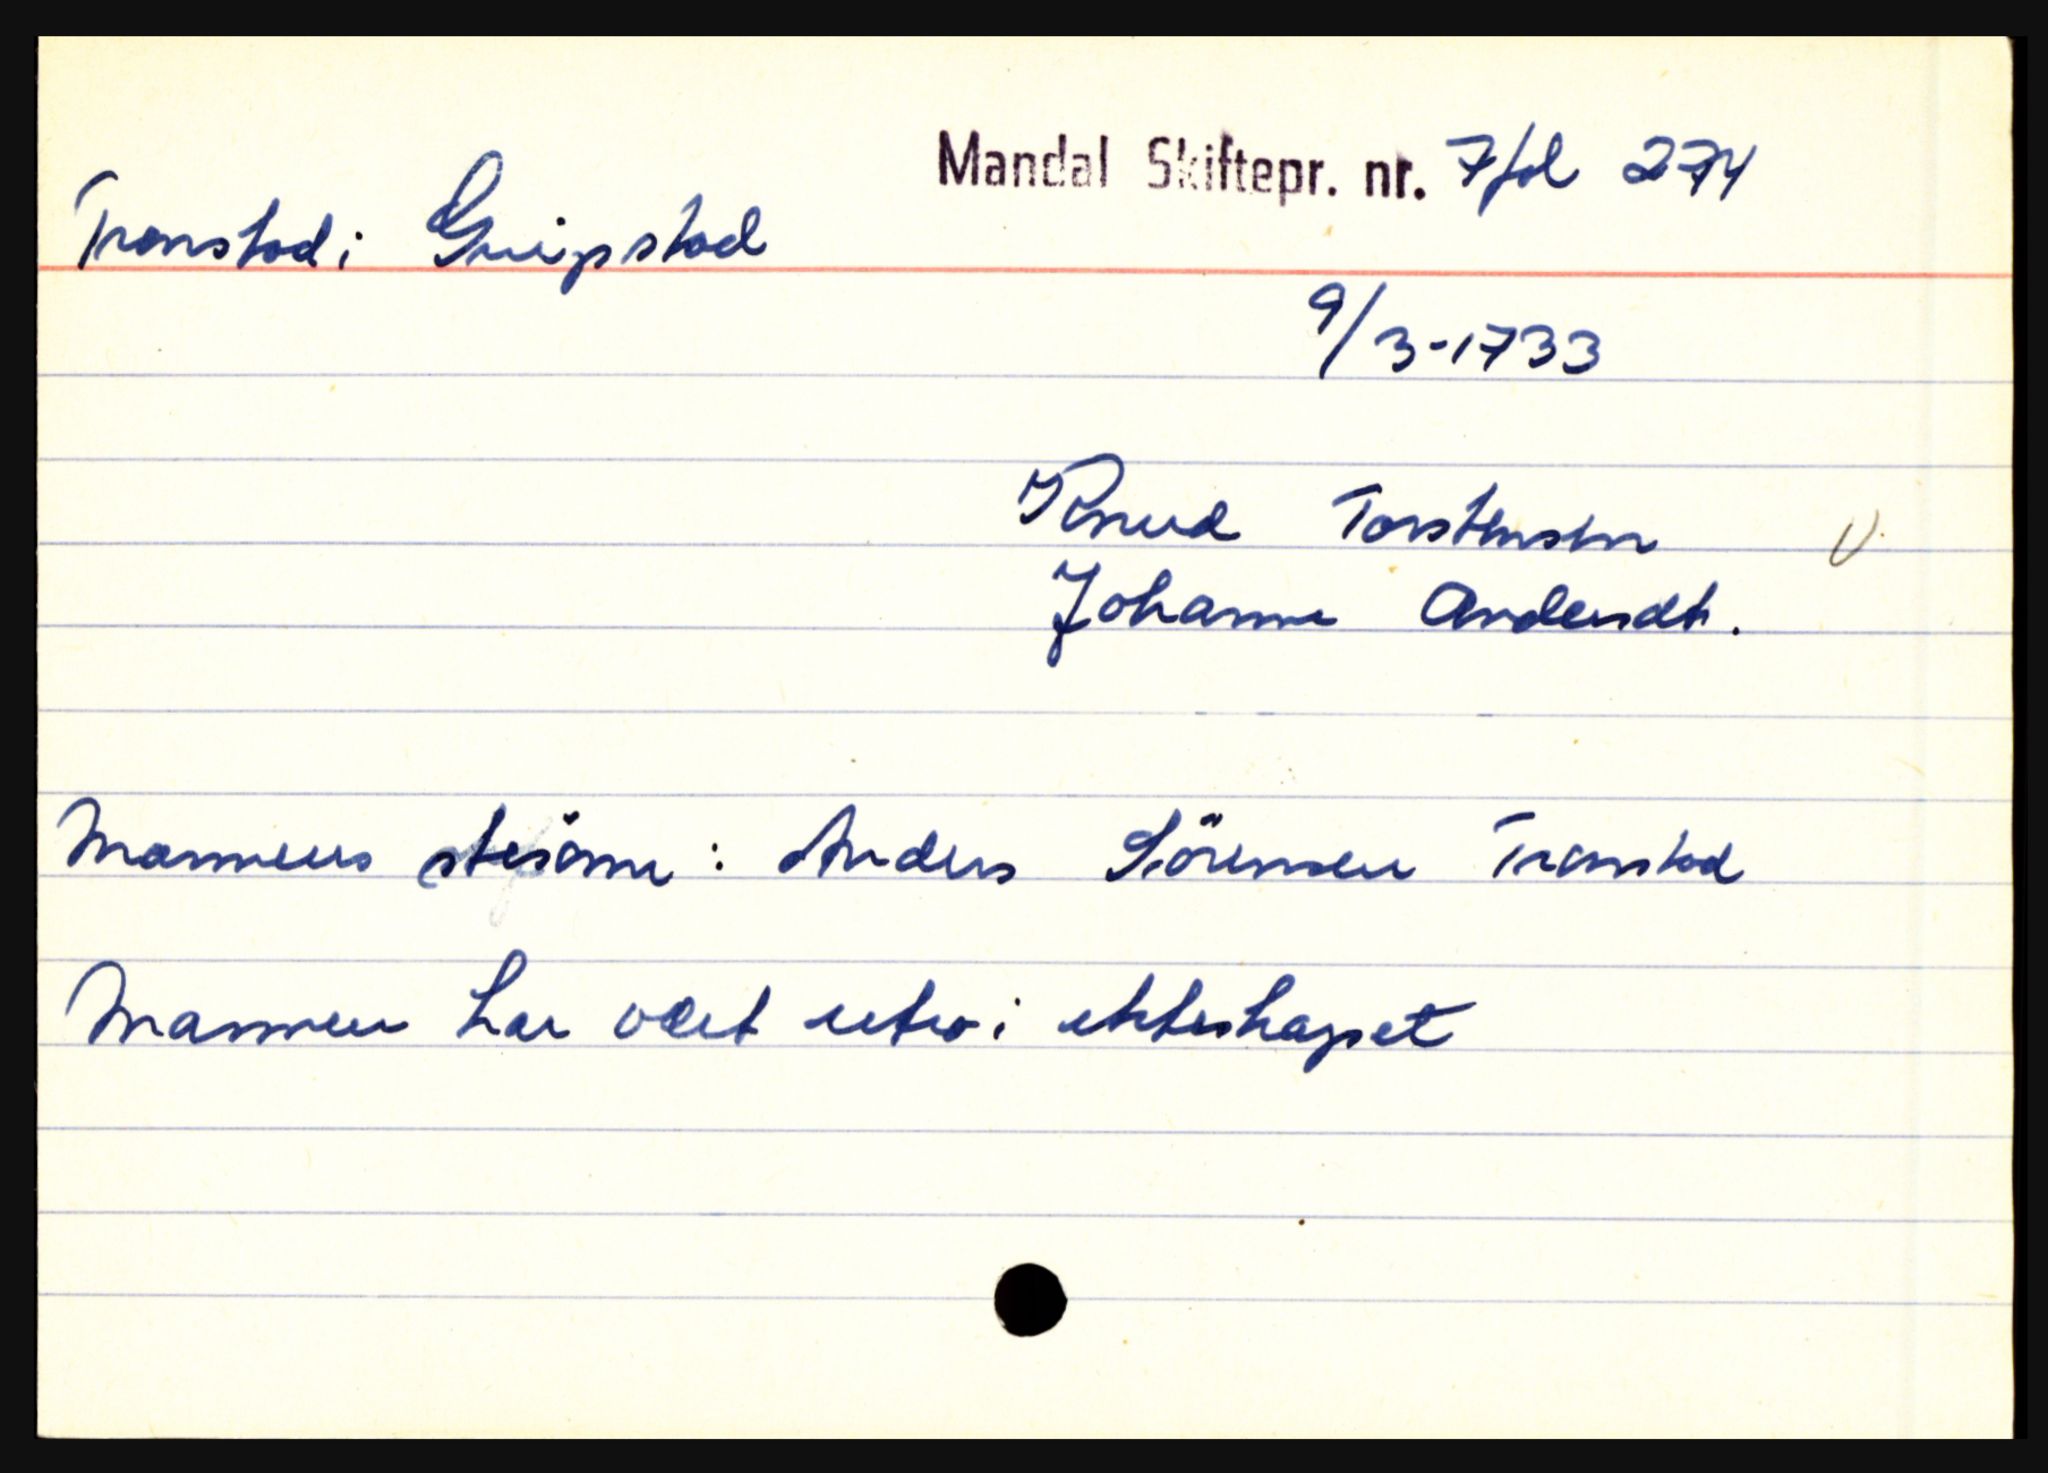 Mandal Skiftepr. nr. 7 fol 274
Tronstad i Greipstad
9/3-1733
Knud Torstensen
Johanne Andersdt.
Mannens stesönn : Anders Sörensen Tronstad
Mannen har vært utro i ekteskapet